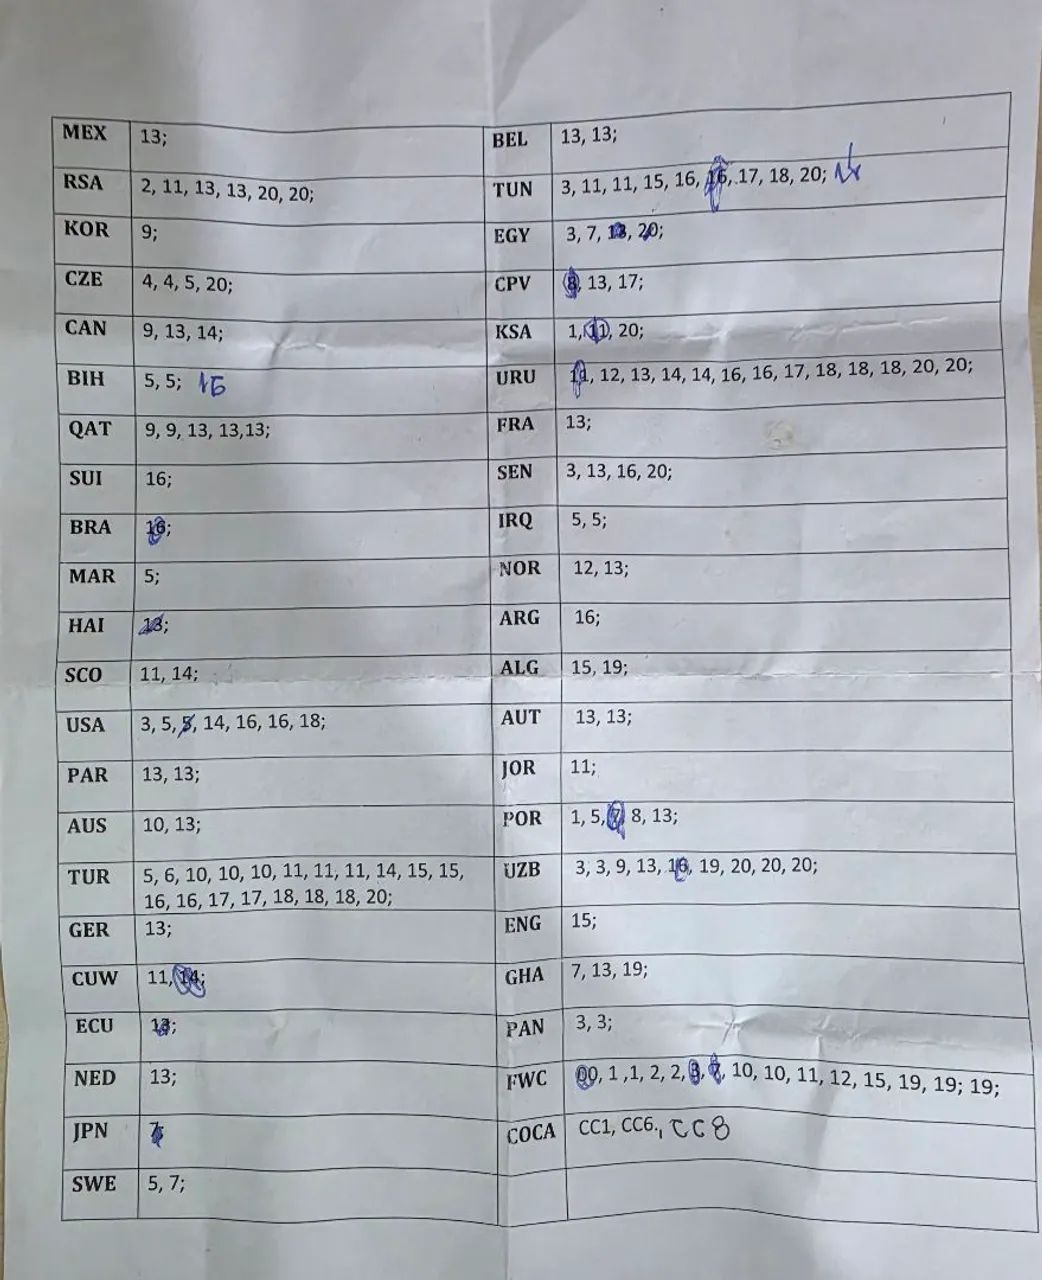 MEX 13;
RSA 2, 11, 13, 13, 20, 20;
KOR 9;
CZE 4, 4, 5, 20;
CAN 9, 13, 14;
BIH 5, 5; 16
QAT 9, 9, 13, 13,13;
SUI 16;
BRA 16;
MAR 5;
HAI 13;
SCO 11, 14;
USA 3, 5, 5, 14, 16, 16, 18;
PAR 13, 13;
AUS 10, 13;
TUR 5, 6, 10, 10, 10, 11, 11, 11, 14, 15, 15,
16, 16, 17, 17, 18, 18, 18, 20;
GER 13;
CUW 11, 14;
ECU
NED 13;
JPN 7
SWE 5, 7;
BEL 13, 13;
TUN 3, 11, 11, 15, 16, 16, 17, 18, 20;
EGY 3, 7, 20;
CPV 8, 13, 17;
KSA 1, 11, 20;
URU 11, 12, 13, 14, 14, 16, 16, 17, 18, 18, 18, 20, 20;
FRA 13;
SEN 3, 13, 16, 20;
IRQ 5, 5;
NOR 12, 13;
ARG 16;
ALG 15, 19;
AUT 13, 13;
JOR 11;
POR 1, 5, 7, 8, 13;
UZB 3, 3, 9, 13, 16, 19, 20, 20, 20;
ENG 15;
GHA 7, 13, 19;
PAN 3, 3;
FWC 00, 1 ,1, 2, 2, 3, 7, 10, 10, 11, 12, 15, 19, 19; 19;
COCA CC1, CC6., CC8